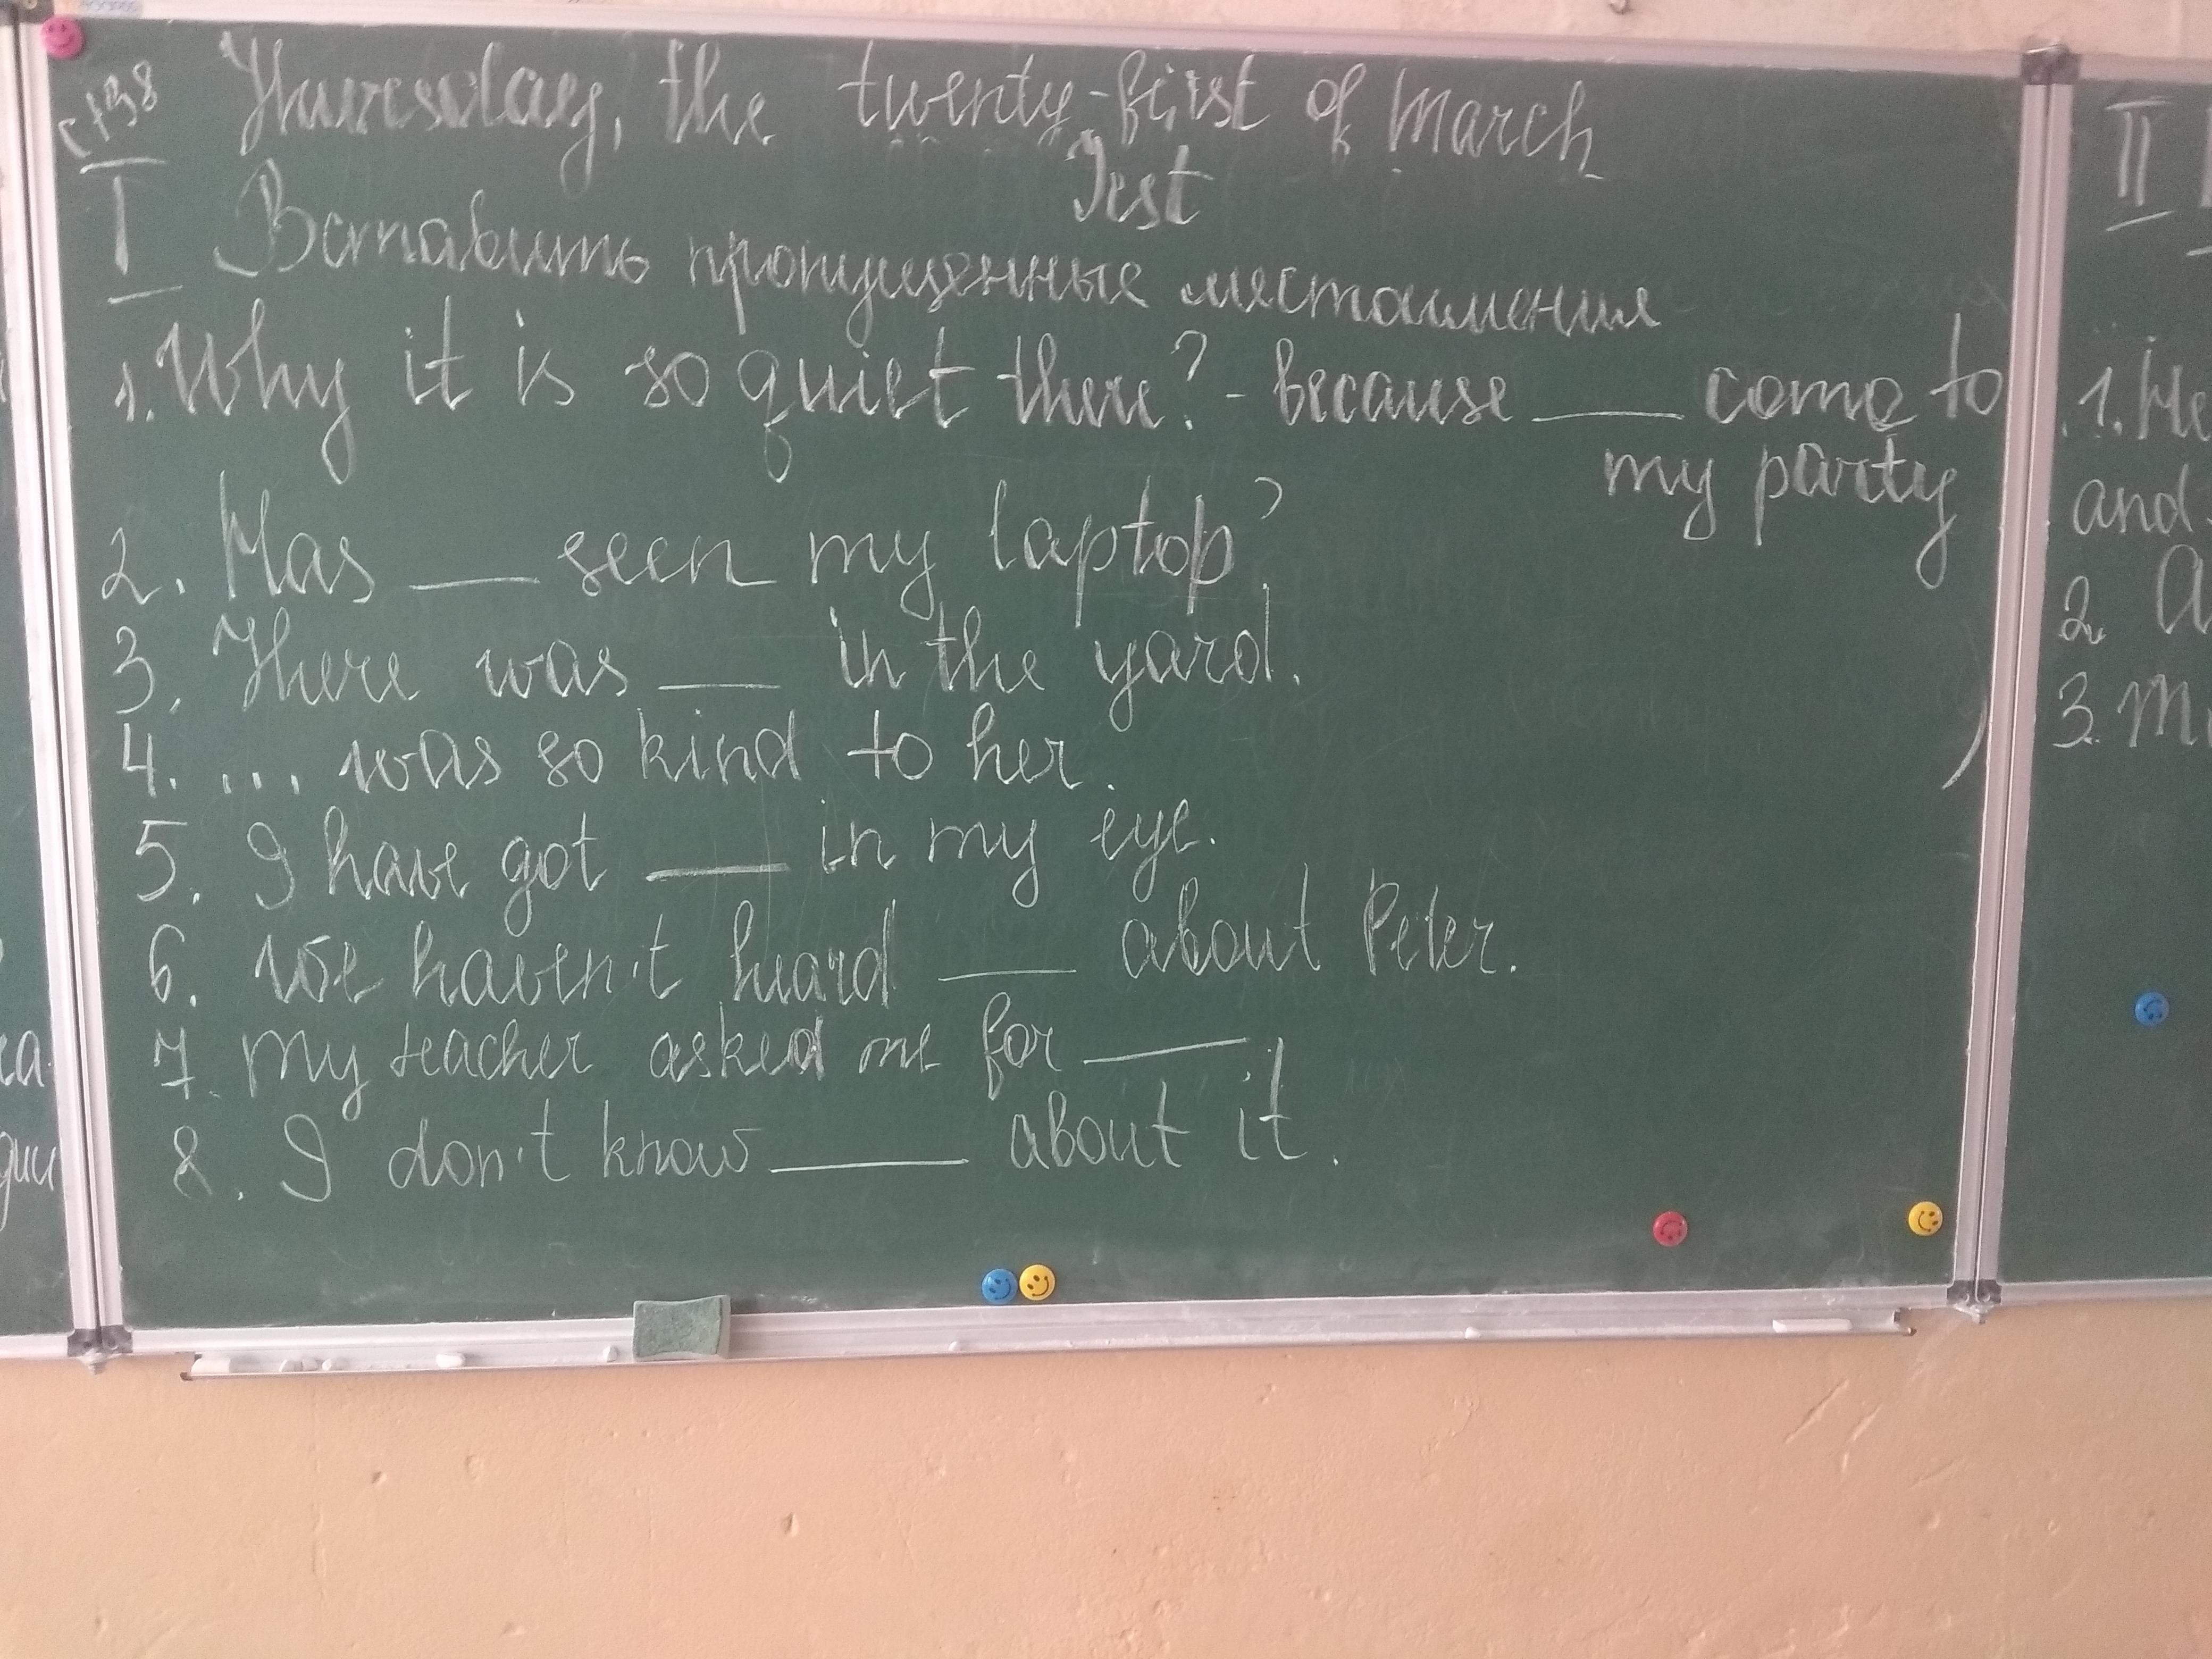 стр 38
Thursday, the twenty-first of March
Test
I Вставить пропущенные местоимения
1. Why it is so quiet there? - because ___ come to
my party
2. Has ___ seen my laptop?
3. There was ___ in the yard.
4. ... was so kind to her.
5. I have got ___ in my eye.
6. We haven't heard ___ about Peter.
7. My teacher asked me for ___
8. I don't know ___ about it.
II
1. He
and
2.
3. M